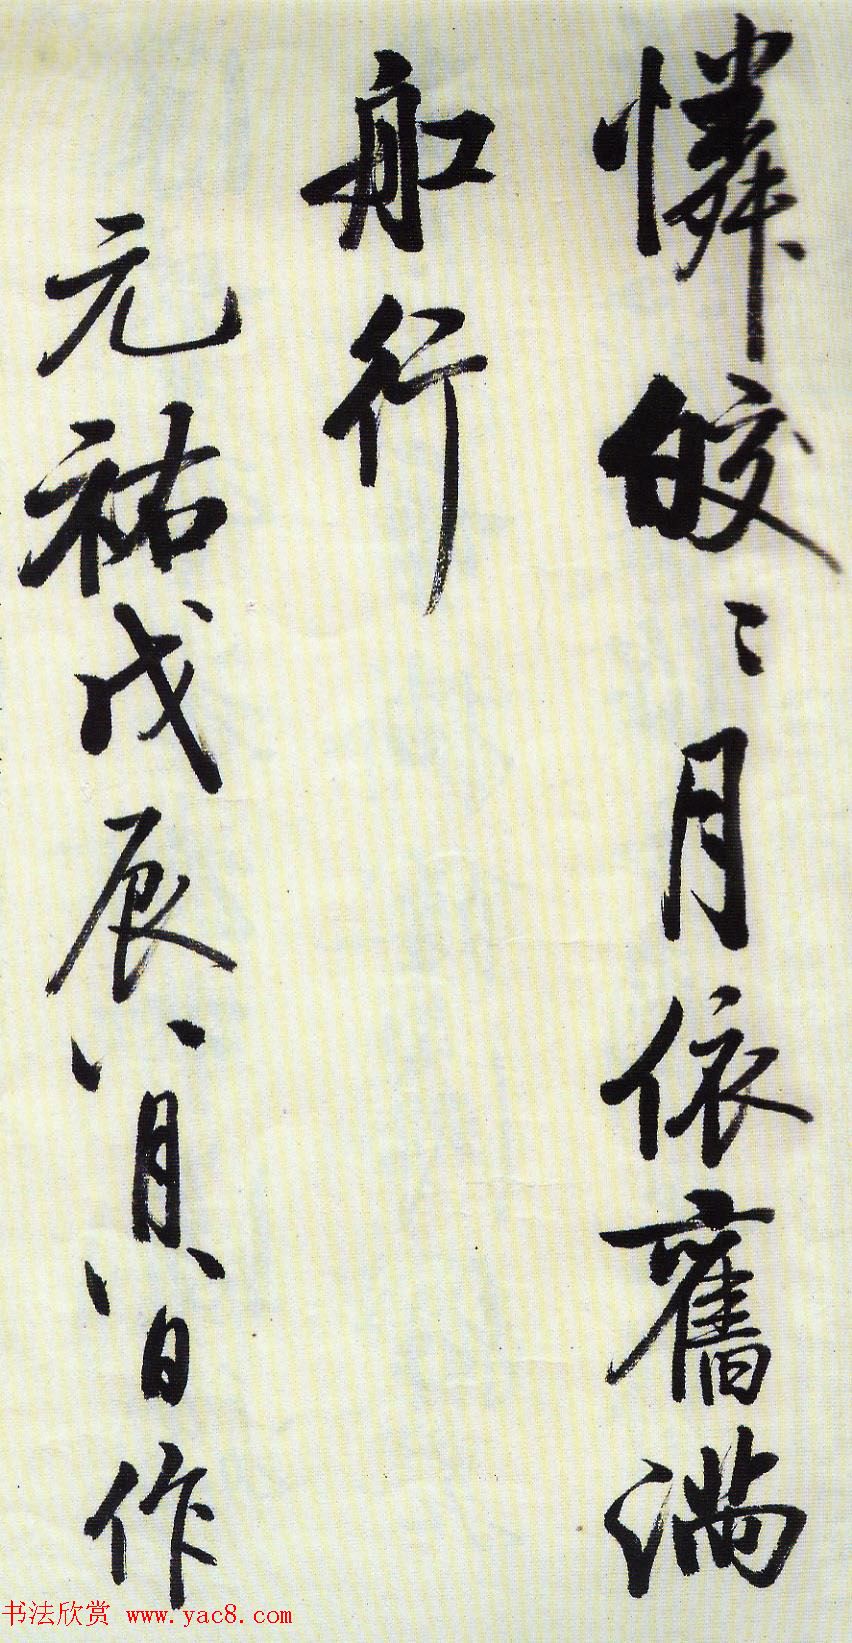 憐皎〻月依舊満
舡行
元祐戊辰八月八日作
书法欣赏 www.yac8.com